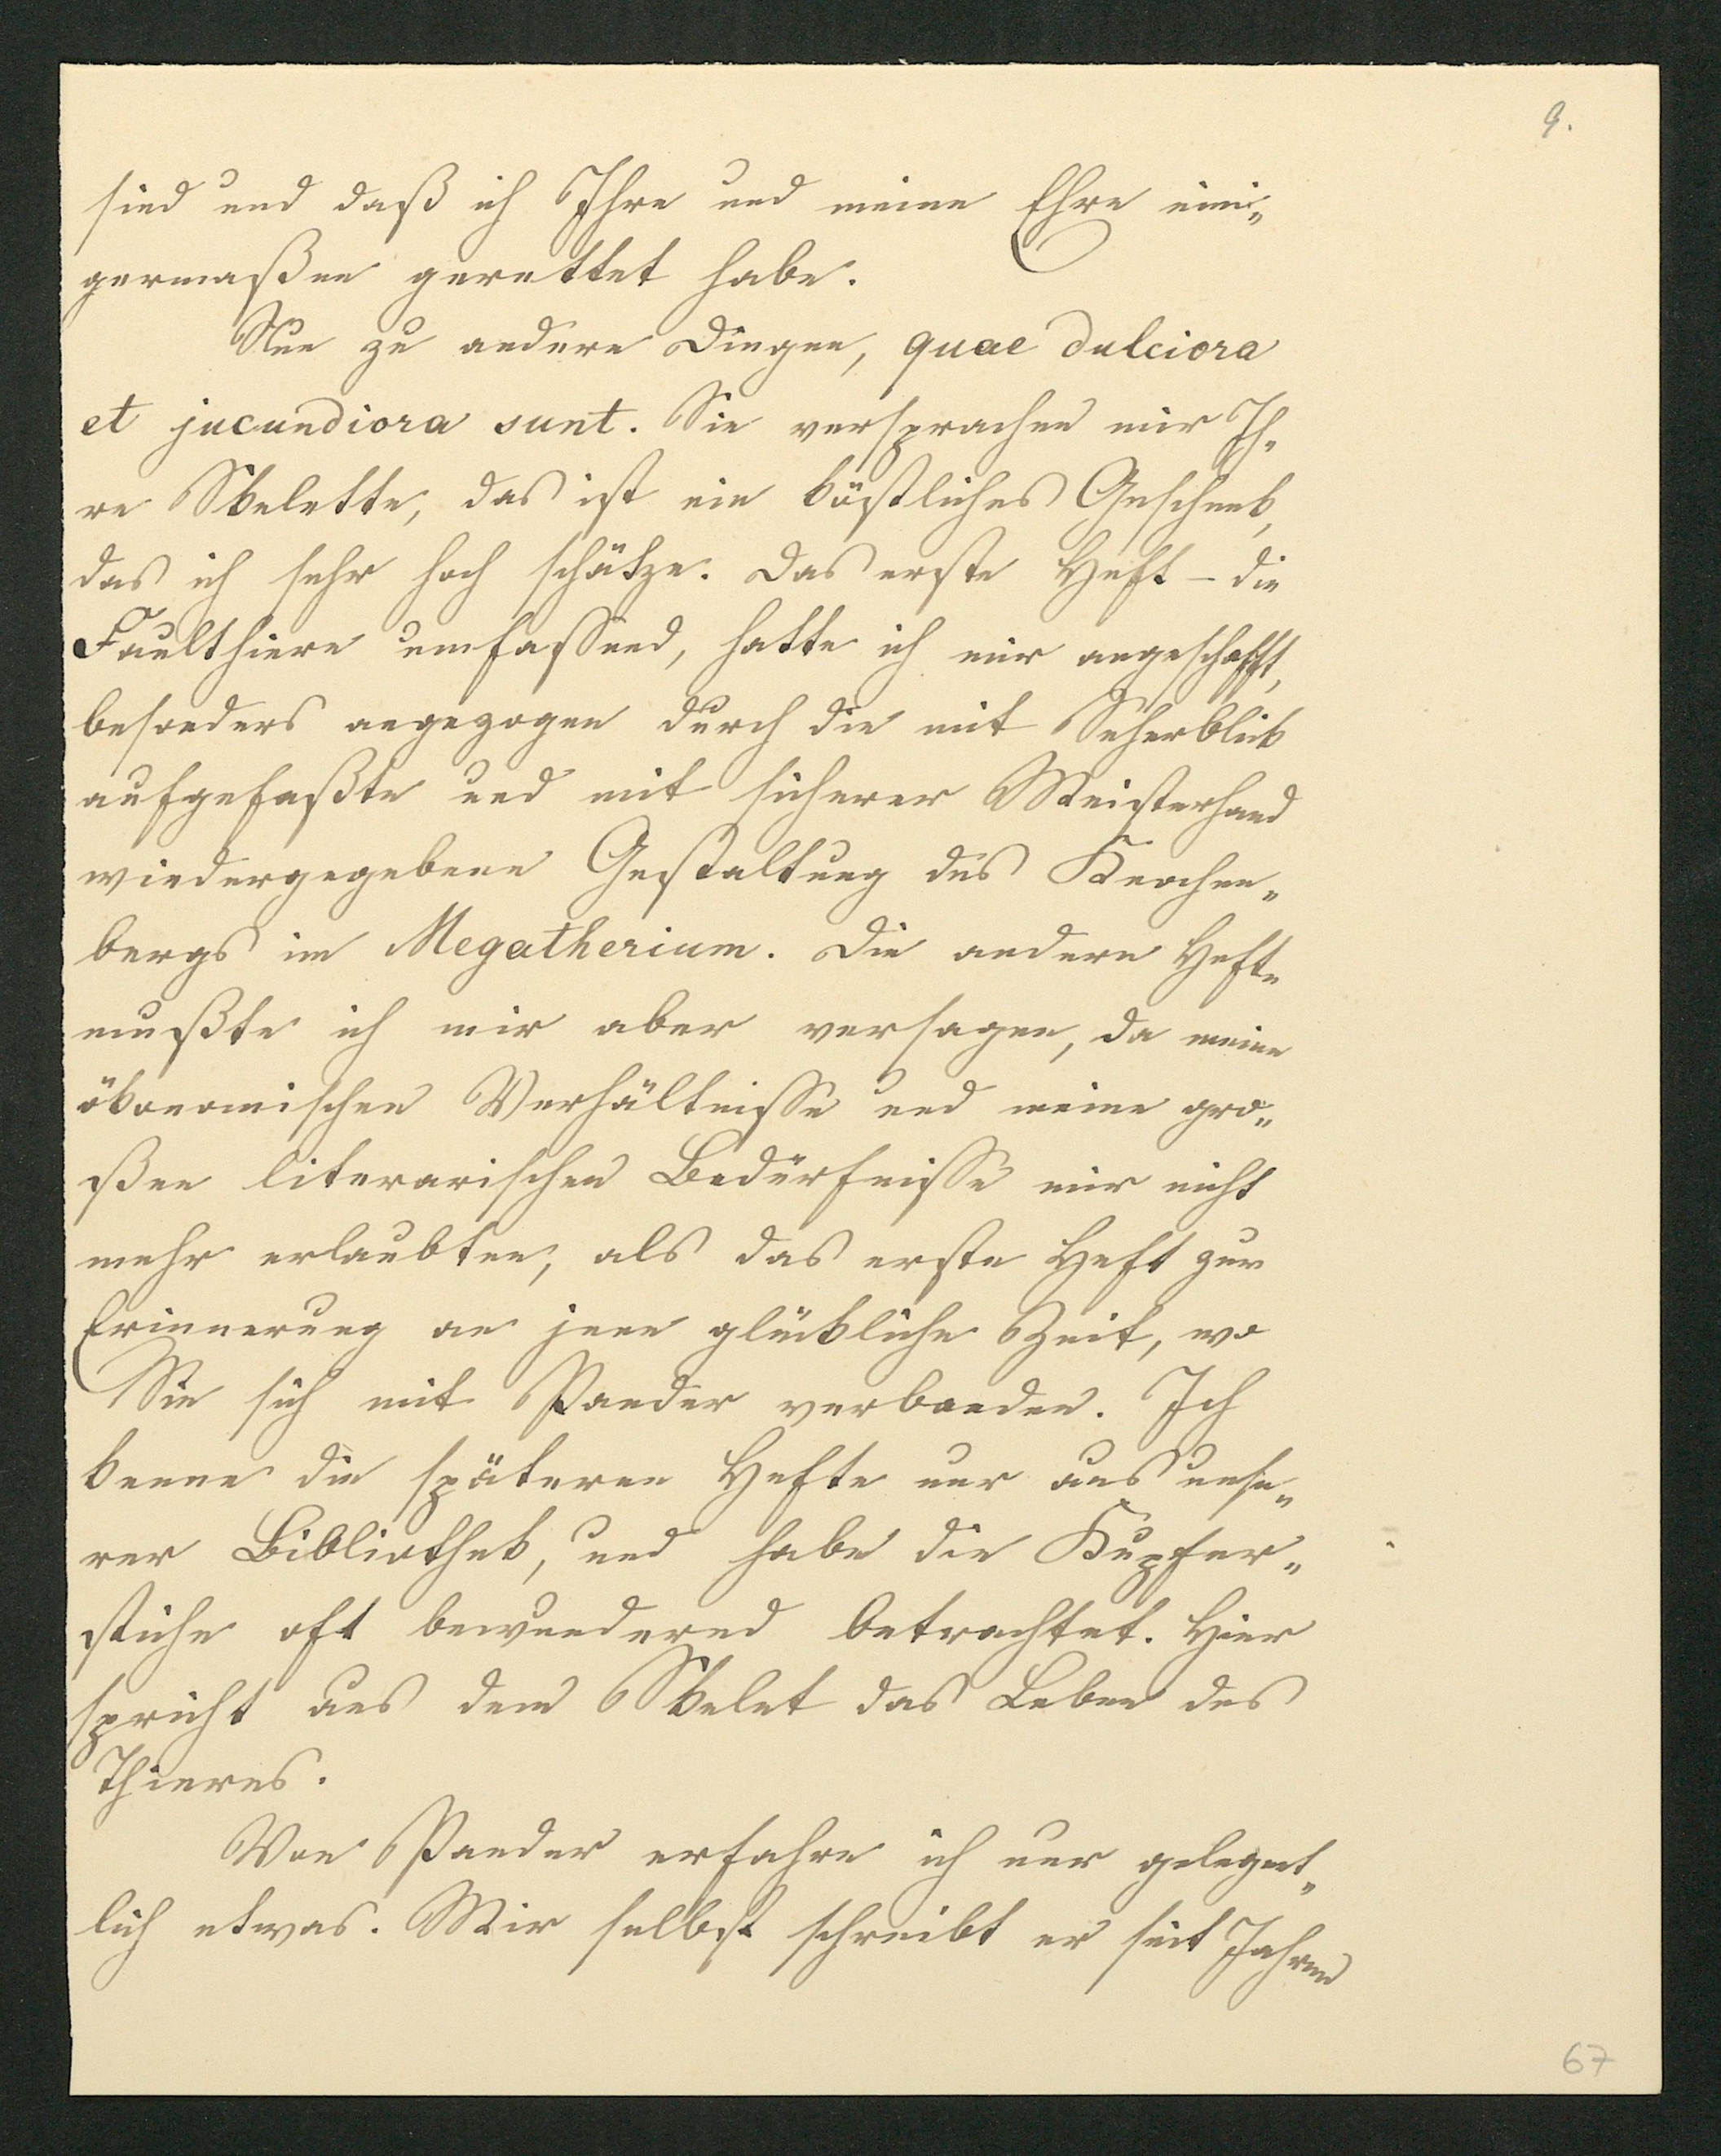 9.
sind und daß ich Ihre und meine Ehre eini-
germaßen gerettet habe.
Nun zu andern Dingen, quae dulciora
et jucundiora sunt. Sie versprachen mir Ih-
re Skelette, das ist ein köstliches Geschenk,
das ich sehr hoch schätze. Das erste Heft – die
Faulthiere umfassend, hatte ich mir angeschafft,
besonders angezogen durch die mit Seherblick
aufgefaßte und mit sicherer Meisterhand
wiedergegebene Gestaltung des Knochen-
bergs im Megatherium. Die andern Hefte
mußte ich mir aber versagen, da meine
ökonomischen Verhältnisse und meine gro-
ßen literarischen Bedürfnisse mir nicht
mehr erlaubten, als das erste Heft zur
Erinnerung an jene glückliche Zeit, wo
Sie sich mit Pander verbanden. Ich
kenne die späteren Hefte nur aus unse-
rer Bibliothek, und habe die Kupfer-
stiche oft bewundernd betrachtet. Hier
spricht aus dem Skelet das Leben des
Thieres.
Von Pander erfahre ich nur gelegent-
lich etwas. Mir selbst schreibt er seit Jahren
67